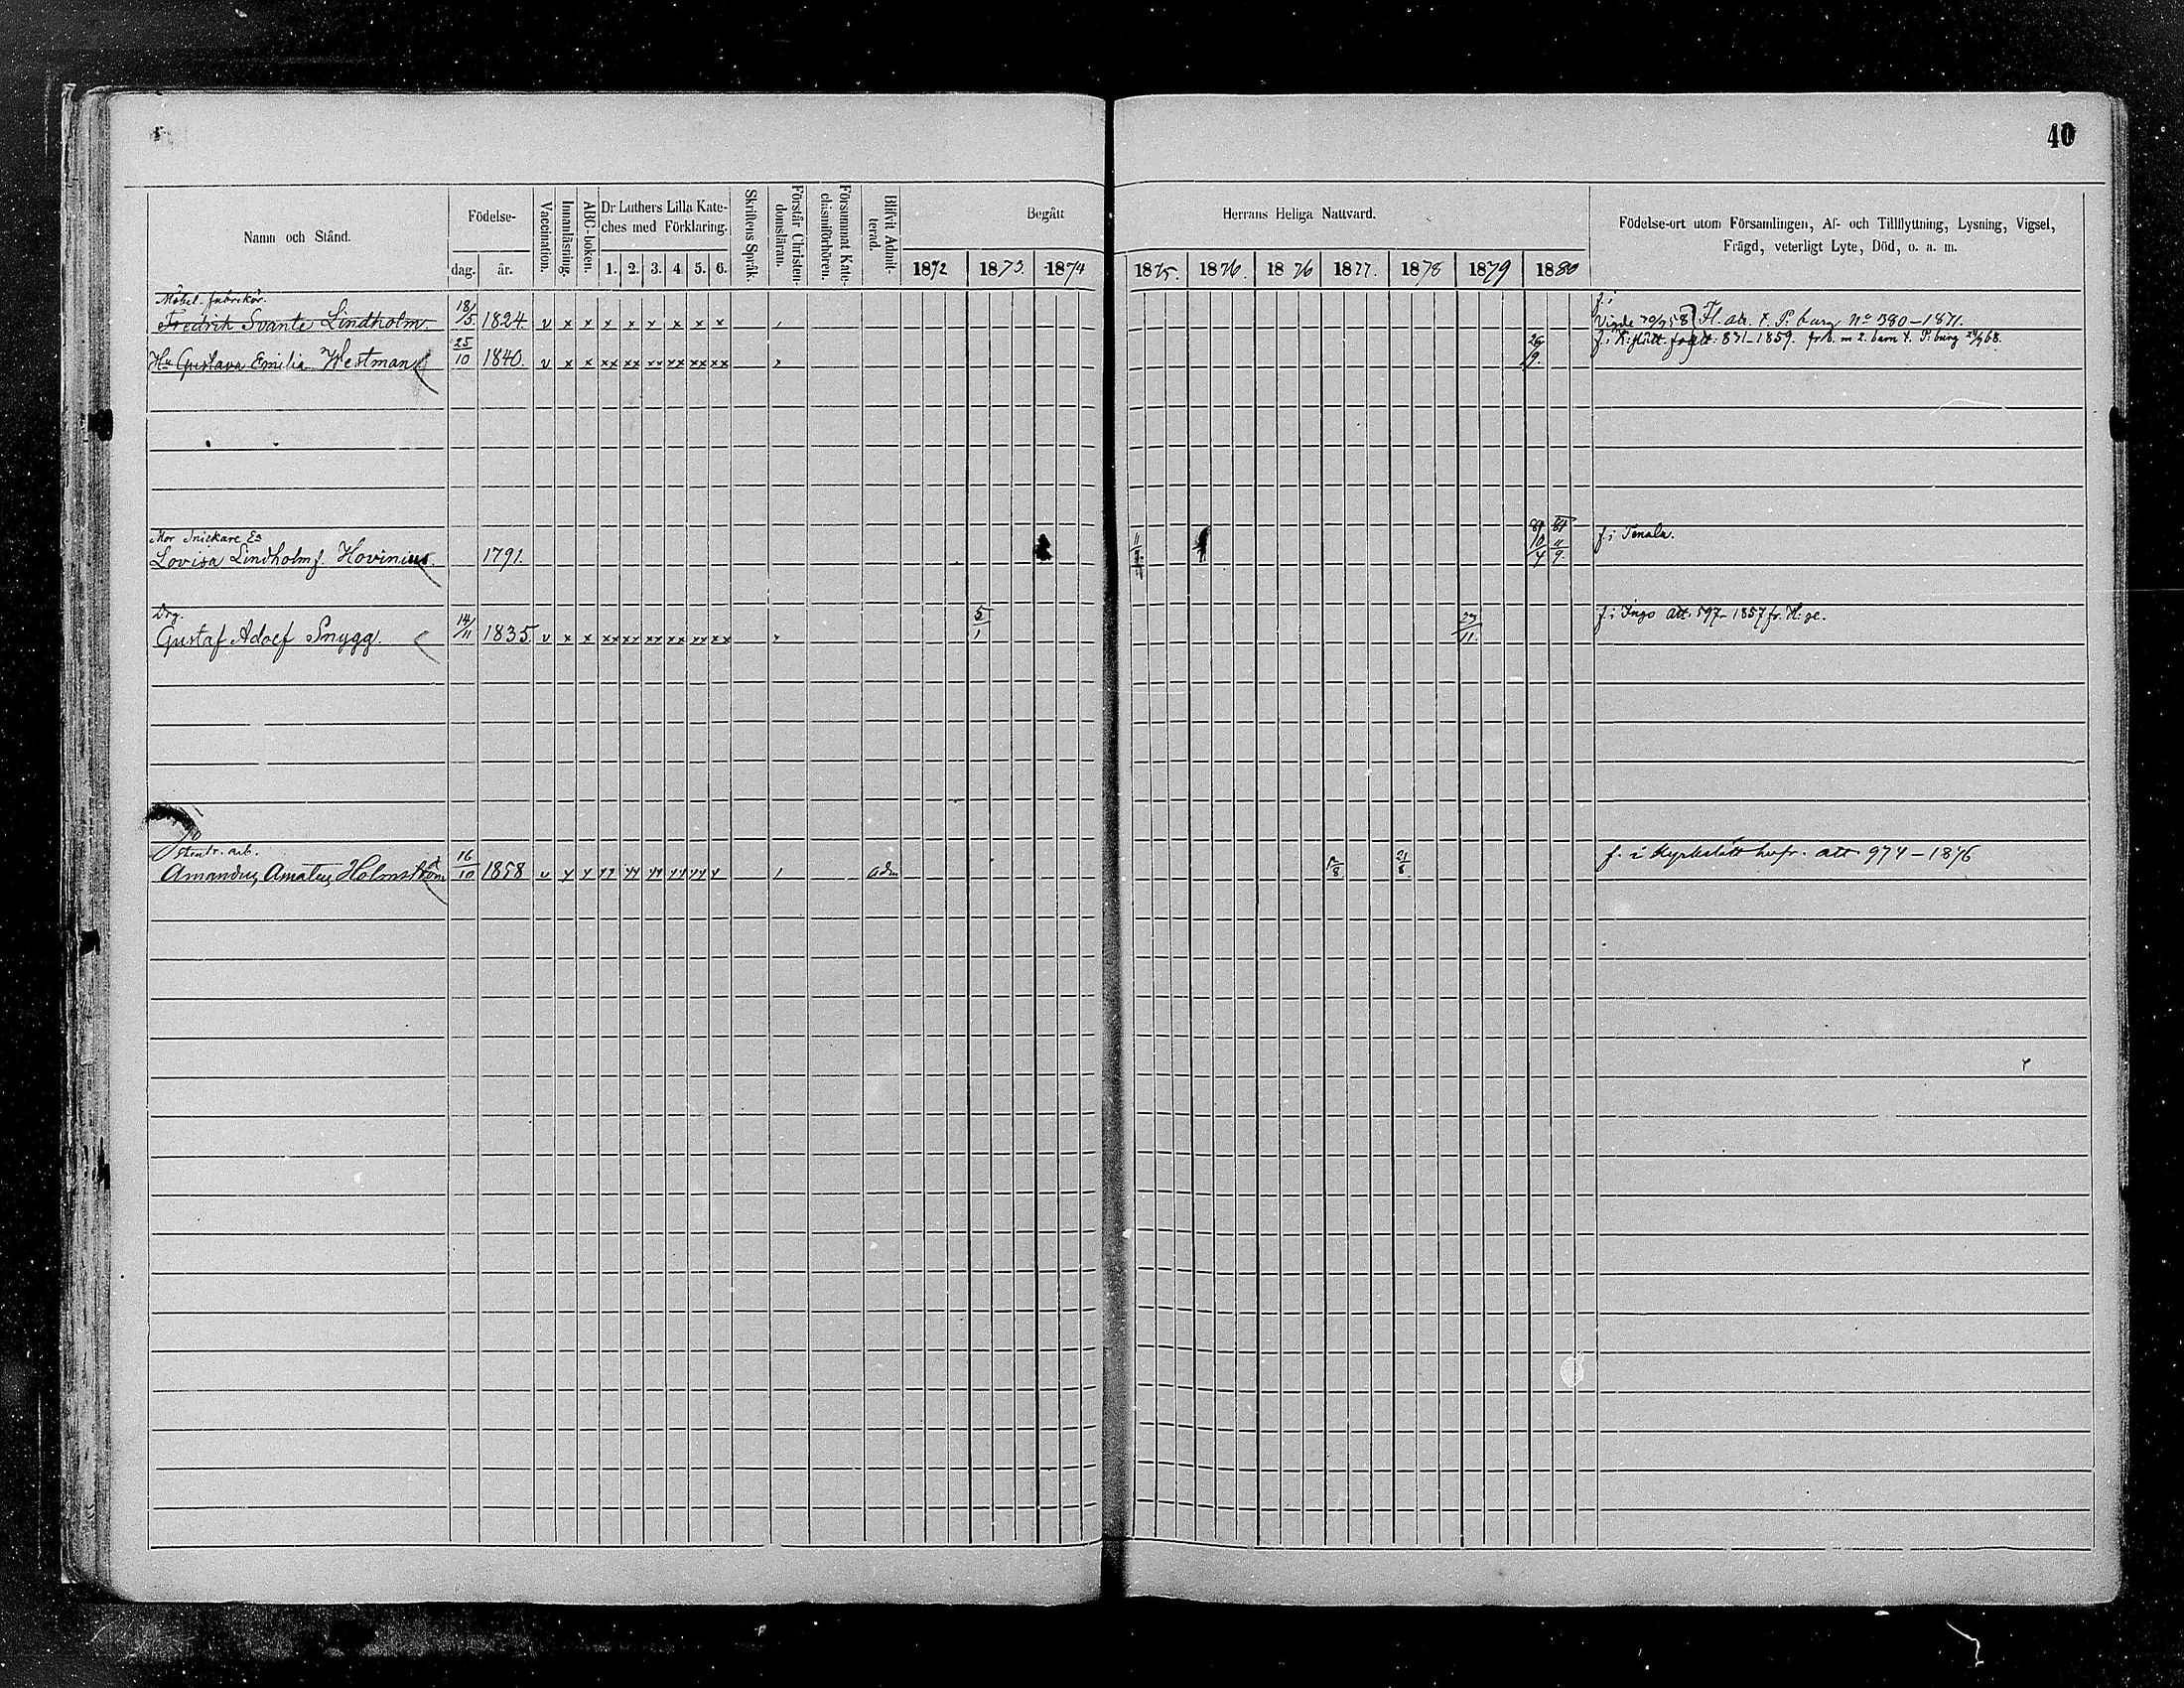 40
Namn och Stånd.
Födelse-
dag. år.
Vaccination.
Innanläsning.
ABC-boken.
Dr Luthers Lilla Kate-
ches med Förklaring.
1. 2. 3. 4 5. 6.
Skriftens Språk.
Förstår Christen-
domsläran.
Försummat Kate-
chismiförhören.
Blifvit Admit-
terad.
Begått Herrans Heliga Nattvard.
1872 1873. 1874 1875. 1876. 1876 1877. 1878 1879 1880
Födelse-ort utom Församlingen, Af- och Tillflyttning, Lysning, Vigsel,
Frägd, veterligt Lyte, Död, o. a. m.
Möbel. fabrikör. f. i
Fredrik Svante Lindholm. 18/5. 1824. v x x x x x x x x Vigde 58 Fl. att. t. P. burg No 380-1871.
Hu Gustava Emilia Westman 25/10 1840. v x x xx xx xx xx xx xx 26/9. att. 831-1859. m 2. barn t. P. burg 68.
Mor Snickare Ea
Lovisa Lindholm f. Hovinius. 1791. 11 81 10/4 81 11/9. f. i Tenala.
Drg.
Gustaf Adolf Snygg. 14/11 1835. v x x xx xx xx xx xx xx 5/1 23/11. f. i Ingo att. 597-1857 fr. H:ge.
arb.
Amandus Amatus Holmström 16/10 1858 v y y yy yy yy yy yy y adm 12/8 21/8 f. i Kyrkslätt hvfr. att 974-1876